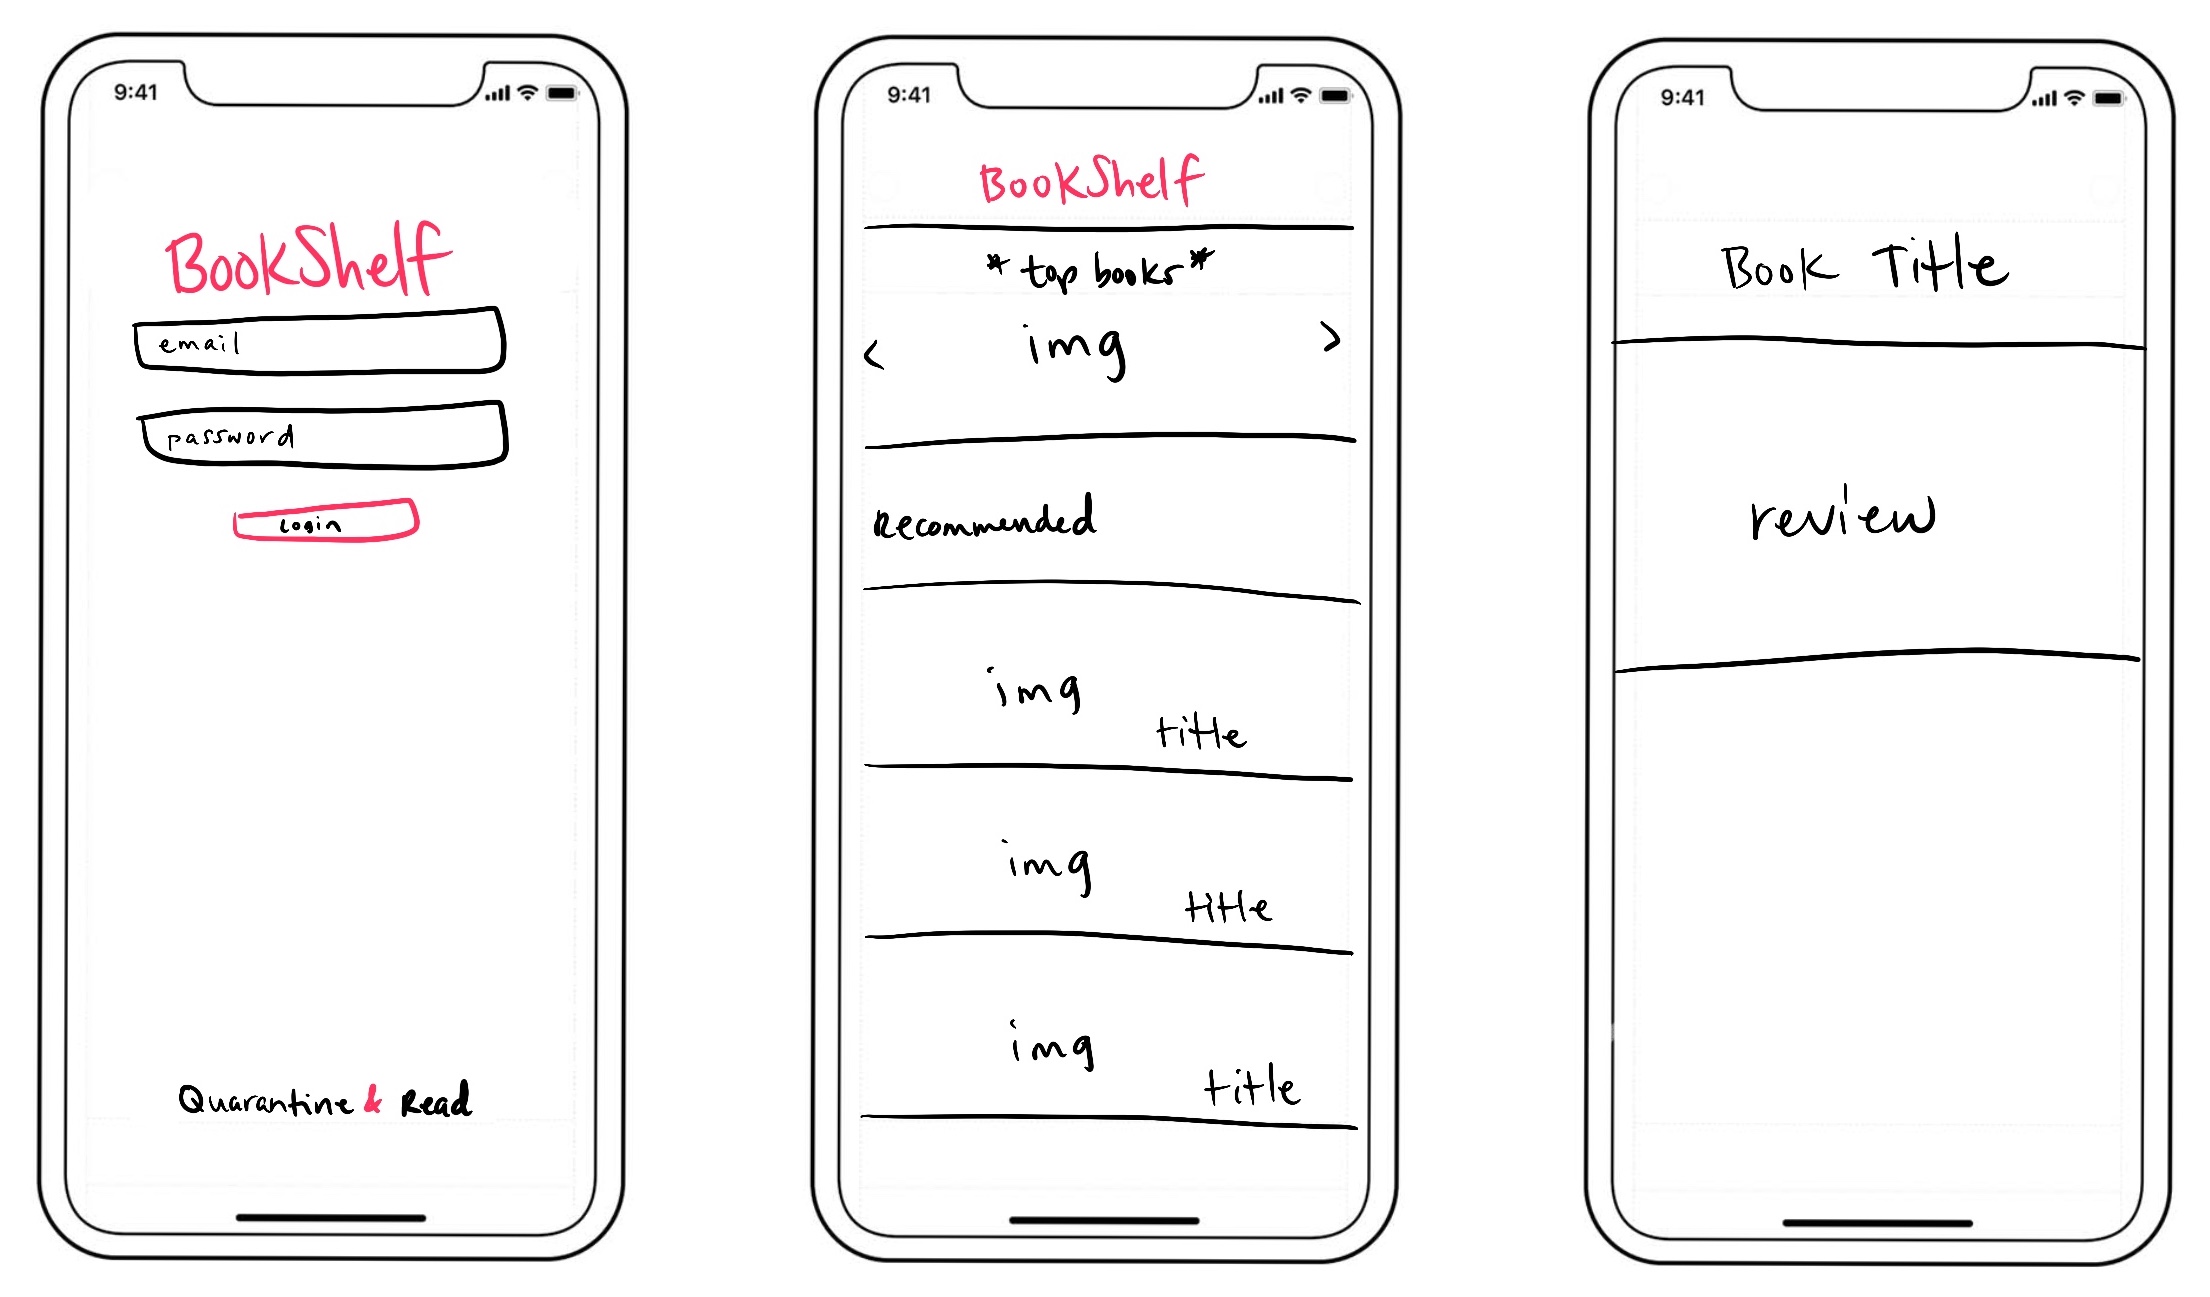 9:41
BookShelf
email
password
Login
Quarantine & Read
9:41
BookShelf
*top books*
< img >
Recommended
img
title
img
title
img
title
9:41
Book Title
review